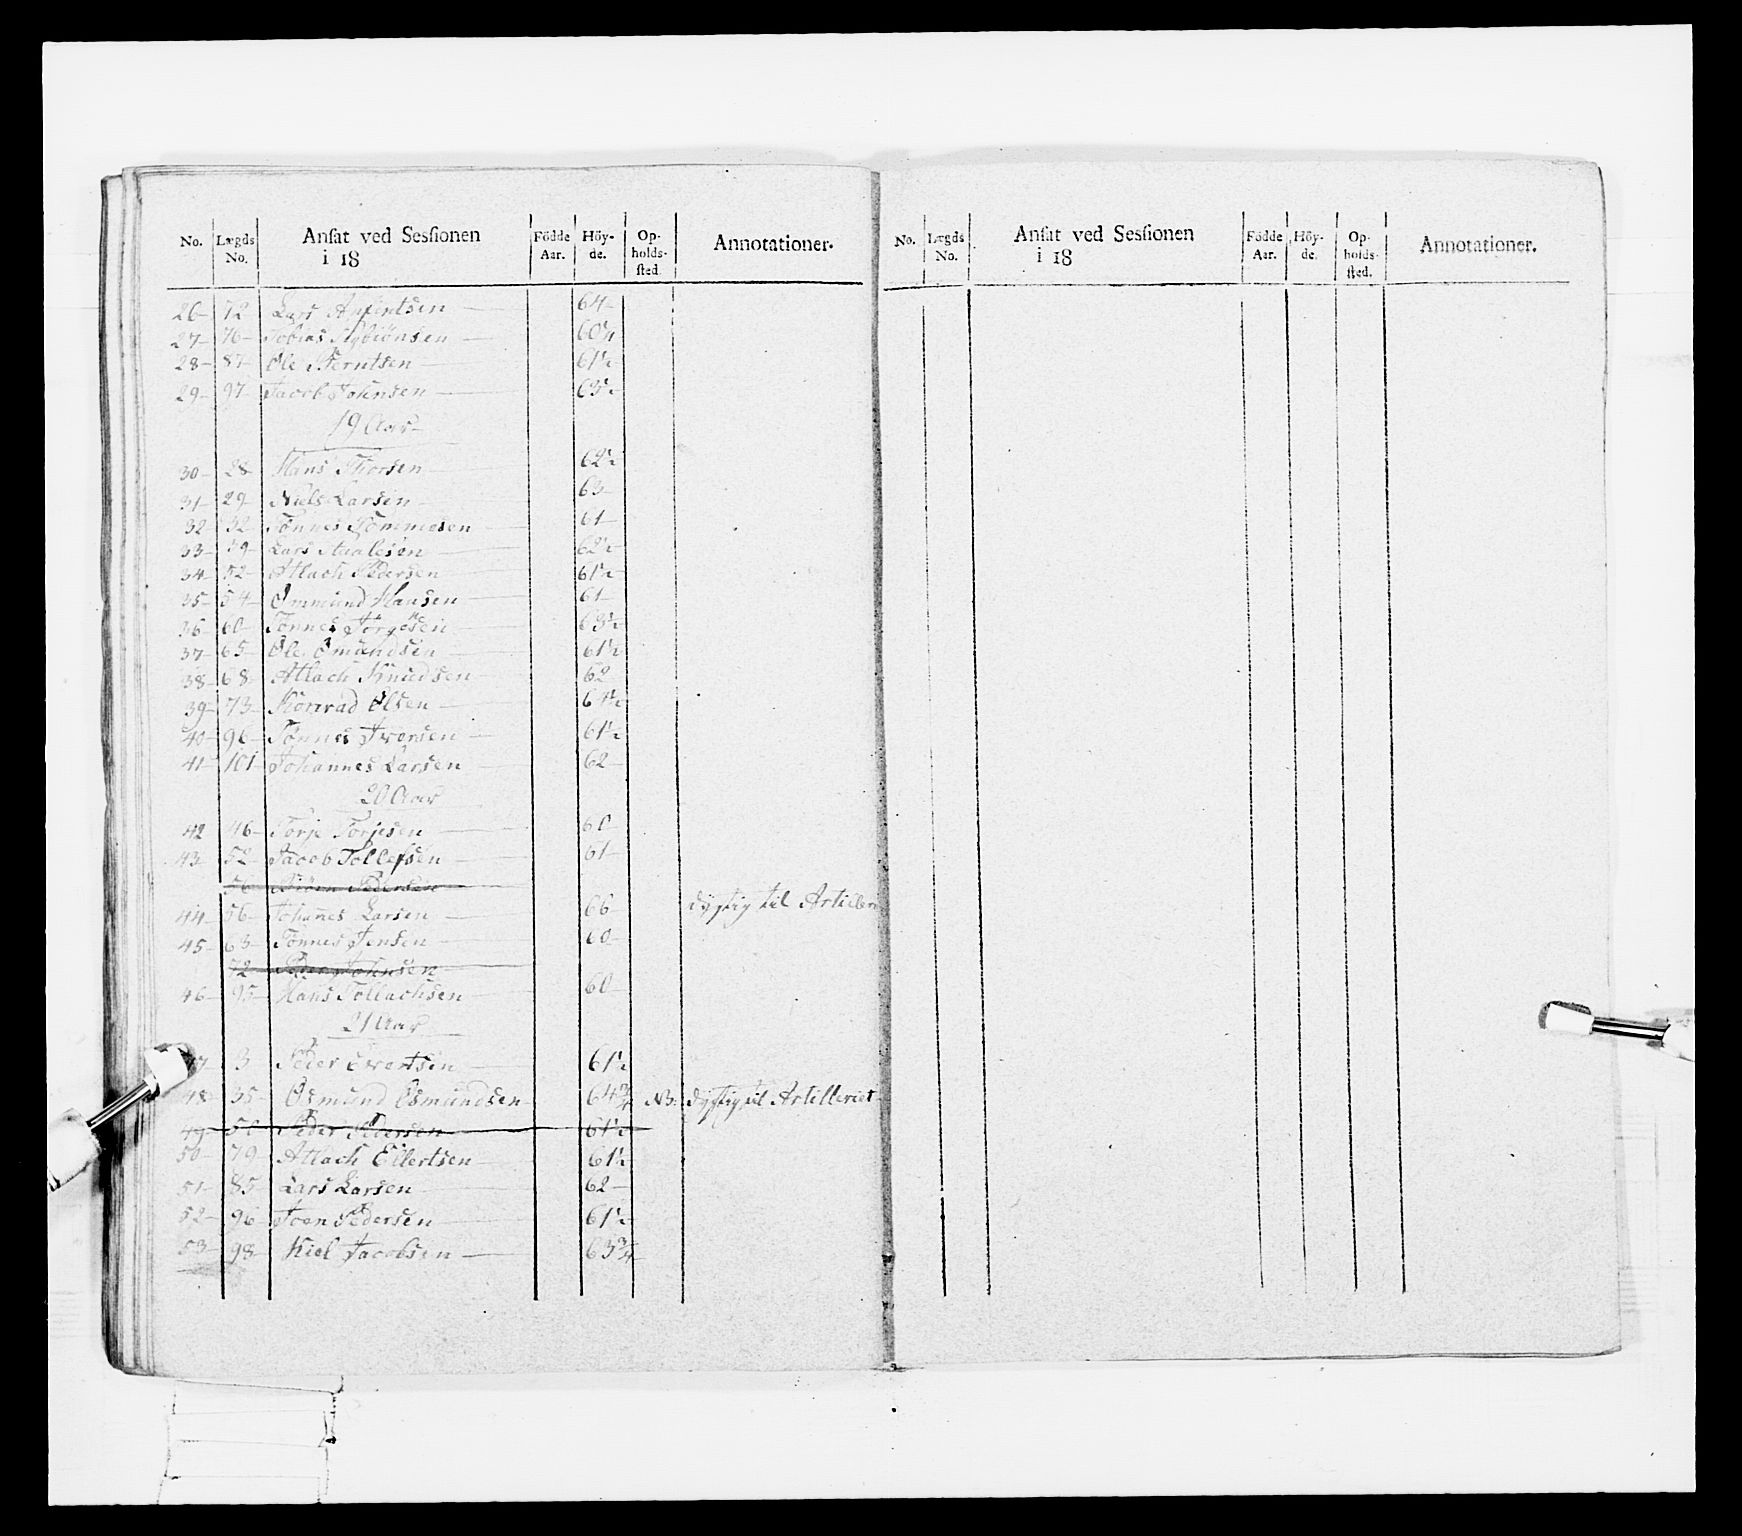 No. Lægds No. Ansat ved Sessionen i 18 Födde Aar. Höyde. Opholdssted. Annotationer.
26 72 Lars Anfintsen 64
27 76 Tobias Asbiönsen 60½
28 87 Ole Berntsen 61½
29 97 Jacob Johnsen 63½
19 Aar
30 28 Hans Thorsen 62½
31 29 Niels Larsen 63
32 32 Tönnes Tommesen 61
33 39 Lars Aaalesen 62½
34 52 Atlach Pedersen 61½
35 54 Ommund Hansen 61
36 60 Tönnes Törgesen 63½
37 65 Ole Omundsen 61½
38 68 Atlach Knudsen 62
39 73 Konrad Olsen 64½
40 96 Tönnes Iversen 61½
41 101 Johannes Larsen 62
20 Aar
42 46 Torje Torjesen 60
43 52 Jacob Tollefsen 61
56 Biörn Pedersen
44 56 Johanes Larsen 66 dygtig til Artilleri
45 63 Tönnes Jensen 60
72 Peder Johnsen
46 95 Hans Tollachsen 60
21 Aar
47 3 Peder Evertsen 61½
48 35 Osmund Osmundsen 64¾ NB: dygtig til Artilleriet
49 50 Peder Pedersen 61½
50 79 Atlach Eilertsen 61½
51 85 Lars Larsen 62
52 96 Toen Pedersen 61½
53 98 Kiel Jacobsen 63¾
No. Lægds No. Ansat ved Sessionen i 18 Födde Aar. Höyde. Opholdssted. Annotationer.